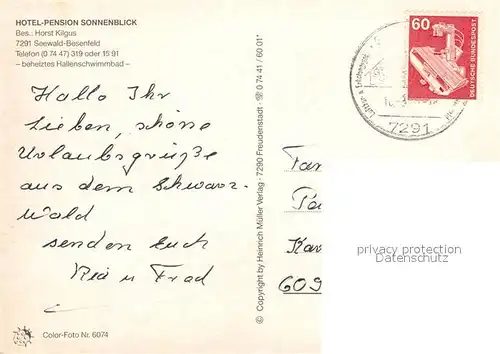 HOTEL-PENSION SONNENBLICK
Bes.: Horst Kilgus
7291 Seewald-Besenfeld
Telefon (0 74 47) 319 oder 15 91
– beheiztes Hallenschwimmbad –
Hallo Ihr
Lieben, schöne
Urlaubsgrüße
aus dem Schwarz-
wald
senden Euch
Color-Foto Nr. 6074
© Copyright by Heinrich Müller Verlag · 7290 Freudenstadt · ☏ 0 74 41 / 60 01*
60
DEUTSCHE BUNDESPOST
7291
Fam
Kar
609
privacy protection